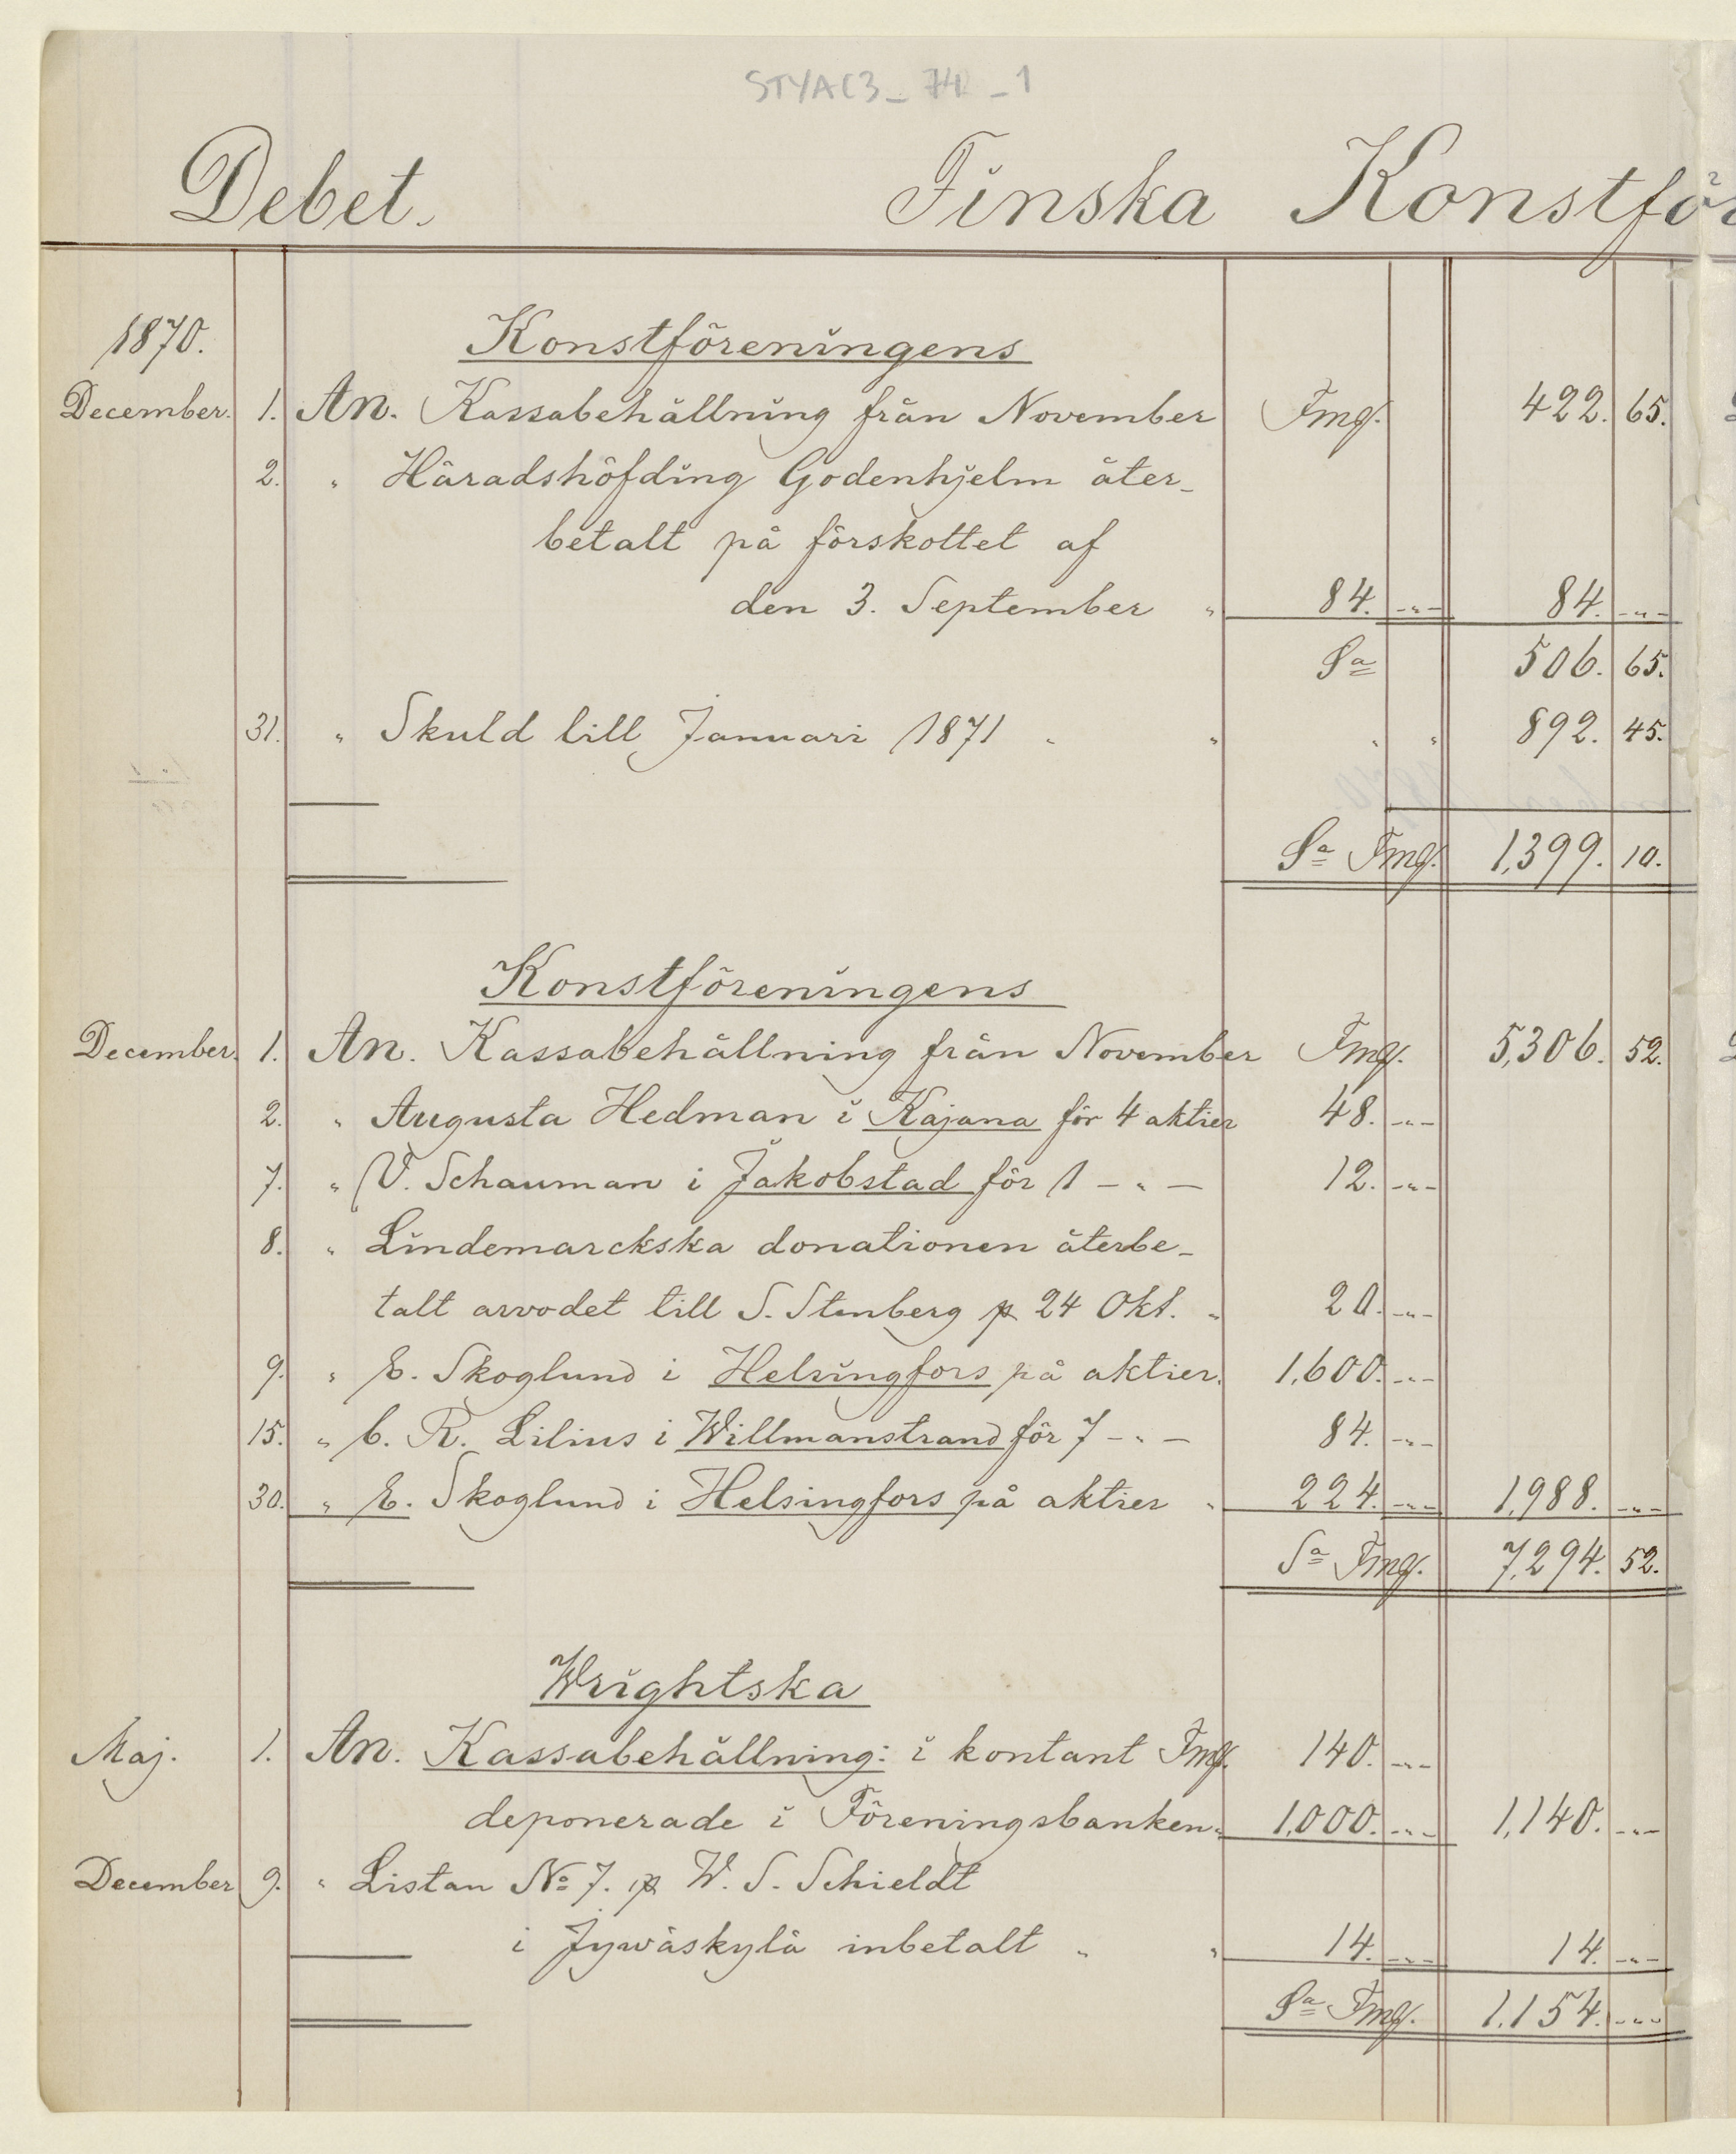 STYAC3_74_1
Debet. Finska Konstför
1870. Konstföreningens
December. 1. An. Kassabehållning från November Fmg. 422. 65.
2. " Häradshöfding Godenhjelm åter-
betalt på förskottet af
den 3. September " 84. -"- 84. -"-
Sa 506. 65.
31. " Skuld till Januari 1871 " " " " 892. 45.
Sa Fmg. 1,399. 10.
Konstföreningens
December. 1. An. Kassabehållning från November Fmg. 5,306. 52.
2. " Augusta Hedman i Kajana för 4 aktier 48. -"-
7. " V. Schauman i Jakobstad för 1 - " - 12. -"-
8. " Lindemarckska donationen återbe-
talt arvodet till S. Stenberg p 24 Okt. " 20. -"-
9. " E. Skoglund i Helsingfors på aktier. 1,600. -"-
15. " C. R. Lilius i Willmanstrand för 7 - " - 84. -"-
30. " E. Skoglund i Helsingfors på aktier " 224. -"- 1,988. -"-
Sa Fmg. 7,294. 52.
Wrightska
Maj. 1. An. Kassabehållning: i kontant Fmg. 140. -"-
deponerade i Föreningsbanken " 1,000. -"- 1,140. -"-
December 9. " Listan No 7. p W. S. Schieldt
i Jywäskylä inbetalt " " 14. -"- 14. -"-
Sa Fmg. 1,154. -"-